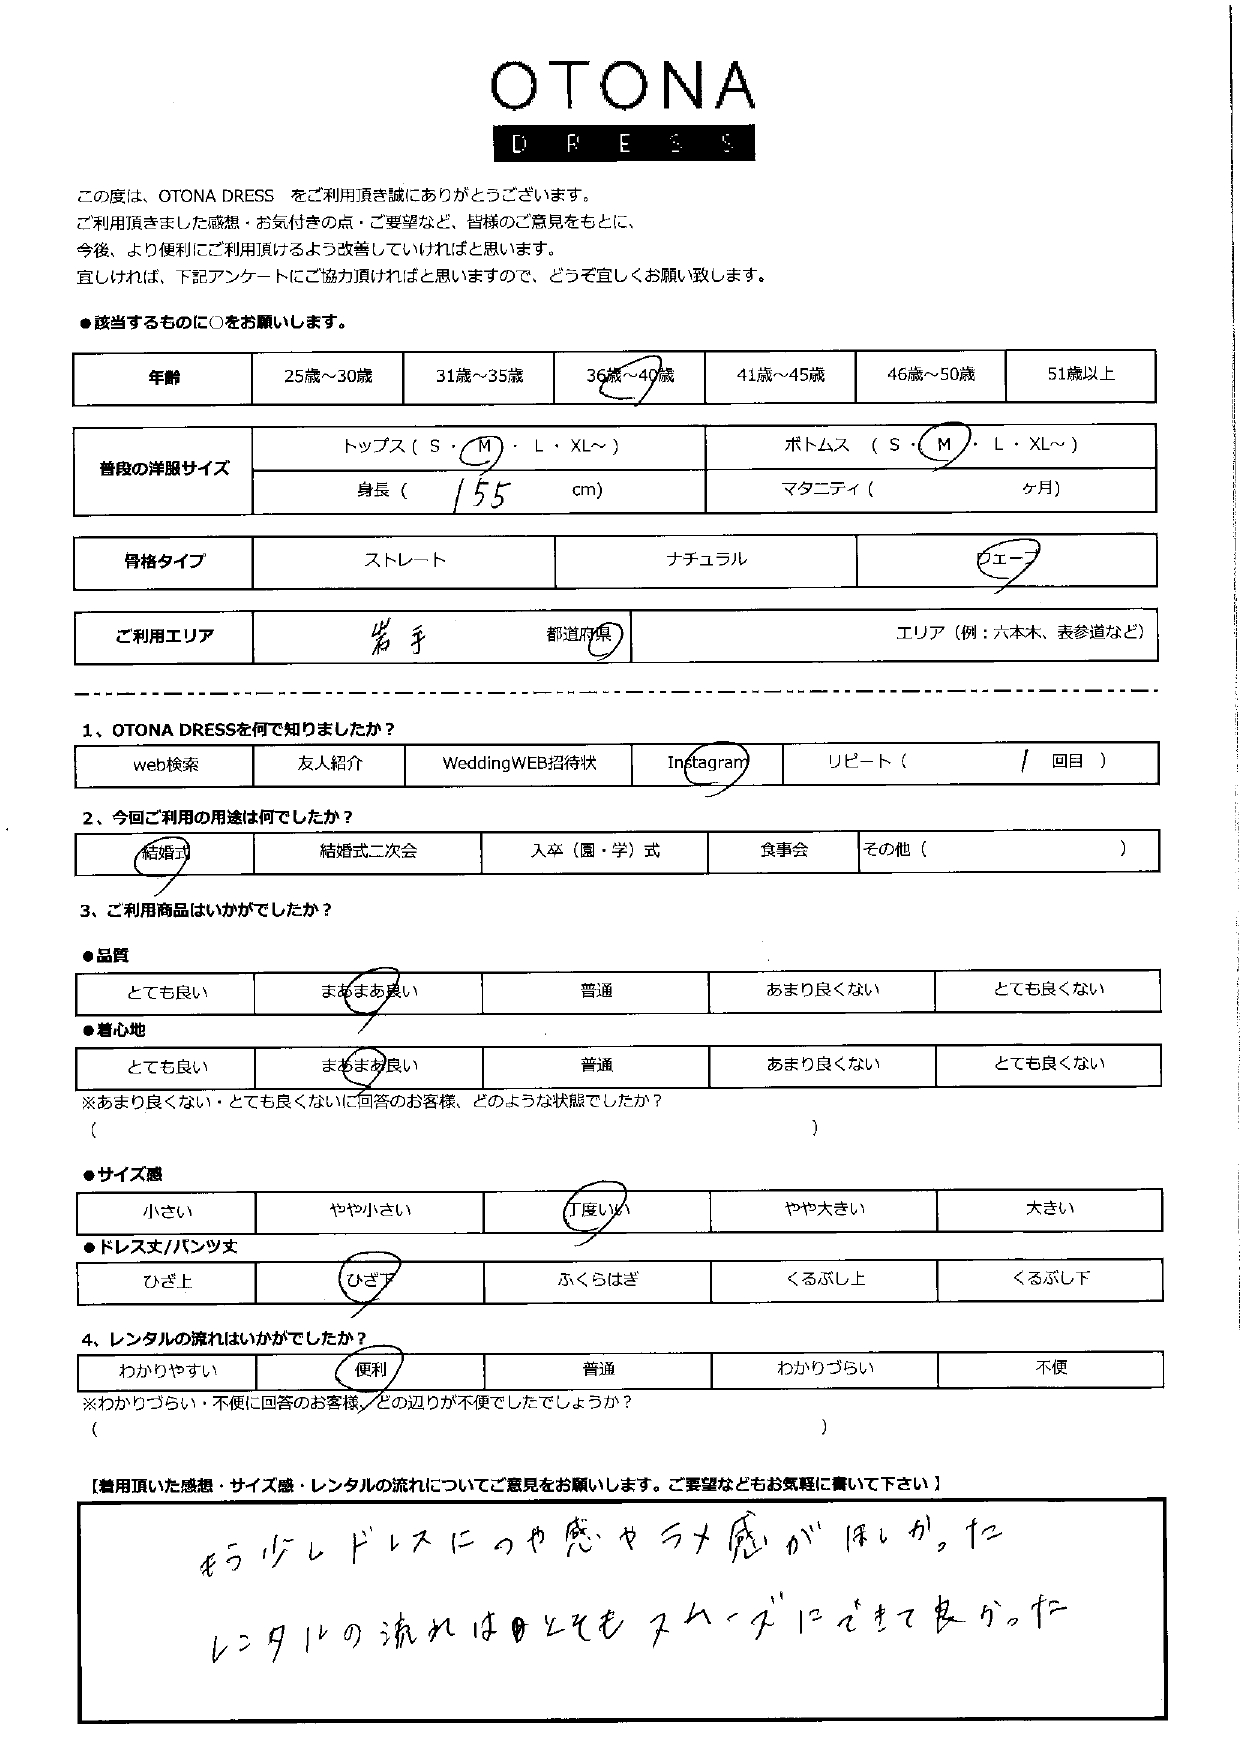 OTONA
DRESS
この度は、OTONA DRESS　をご利用頂き誠にありがとうございます。
ご利用頂きました感想・お気付きの点・ご要望など、皆様のご意見をもとに、
今後、より便利にご利用頂けるよう改善していければと思います。
宜しければ、下記アンケートにご協力頂ければと思いますので、どうぞ宜しくお願い致します。
●該当するものに○をお願いします。
年齢 25歳～30歳 31歳～35歳 36歳～40歳 41歳～45歳 46歳～50歳 51歳以上
普段の洋服サイズ トップス ( S ・ M ・ L ・ XL～ ) ボトムス ( S ・ M ・ L ・ XL～ )
身長 ( 155 cm) マタニティ ( ヶ月)
骨格タイプ ストレート ナチュラル ウェーブ
ご利用エリア 岩手 都道府県 エリア（例：六本木、表参道など）
1、OTONA DRESSを何で知りましたか？
web検索 友人紹介 WeddingWEB招待状 Instagram リピート ( 1 回目 )
2、今回ご利用の用途は何でしたか？
結婚式 結婚式二次会 入卒（園・学）式 食事会 その他 ( )
3、ご利用商品はいかがでしたか？
●品質
とても良い まあまあ良い 普通 あまり良くない とても良くない
●着心地
とても良い まあまあ良い 普通 あまり良くない とても良くない
※あまり良くない・とても良くないに回答のお客様、どのような状態でしたか？
( )
●サイズ感
小さい やや小さい 丁度いい やや大きい 大きい
●ドレス丈/パンツ丈
ひざ上 ひざ下 ふくらはぎ くるぶし上 くるぶし下
4、レンタルの流れはいかがでしたか？
わかりやすい 便利 普通 わかりづらい 不便
※わかりづらい・不便に回答のお客様、どの辺りが不便でしたでしょうか？
( )
【着用頂いた感想・サイズ感・レンタルの流れについてご意見をお願いします。ご要望などもお気軽に書いて下さい】
もう少しドレスにつや感やラメ感がほしかった
レンタルの流れはとてもスムーズにできて良かった